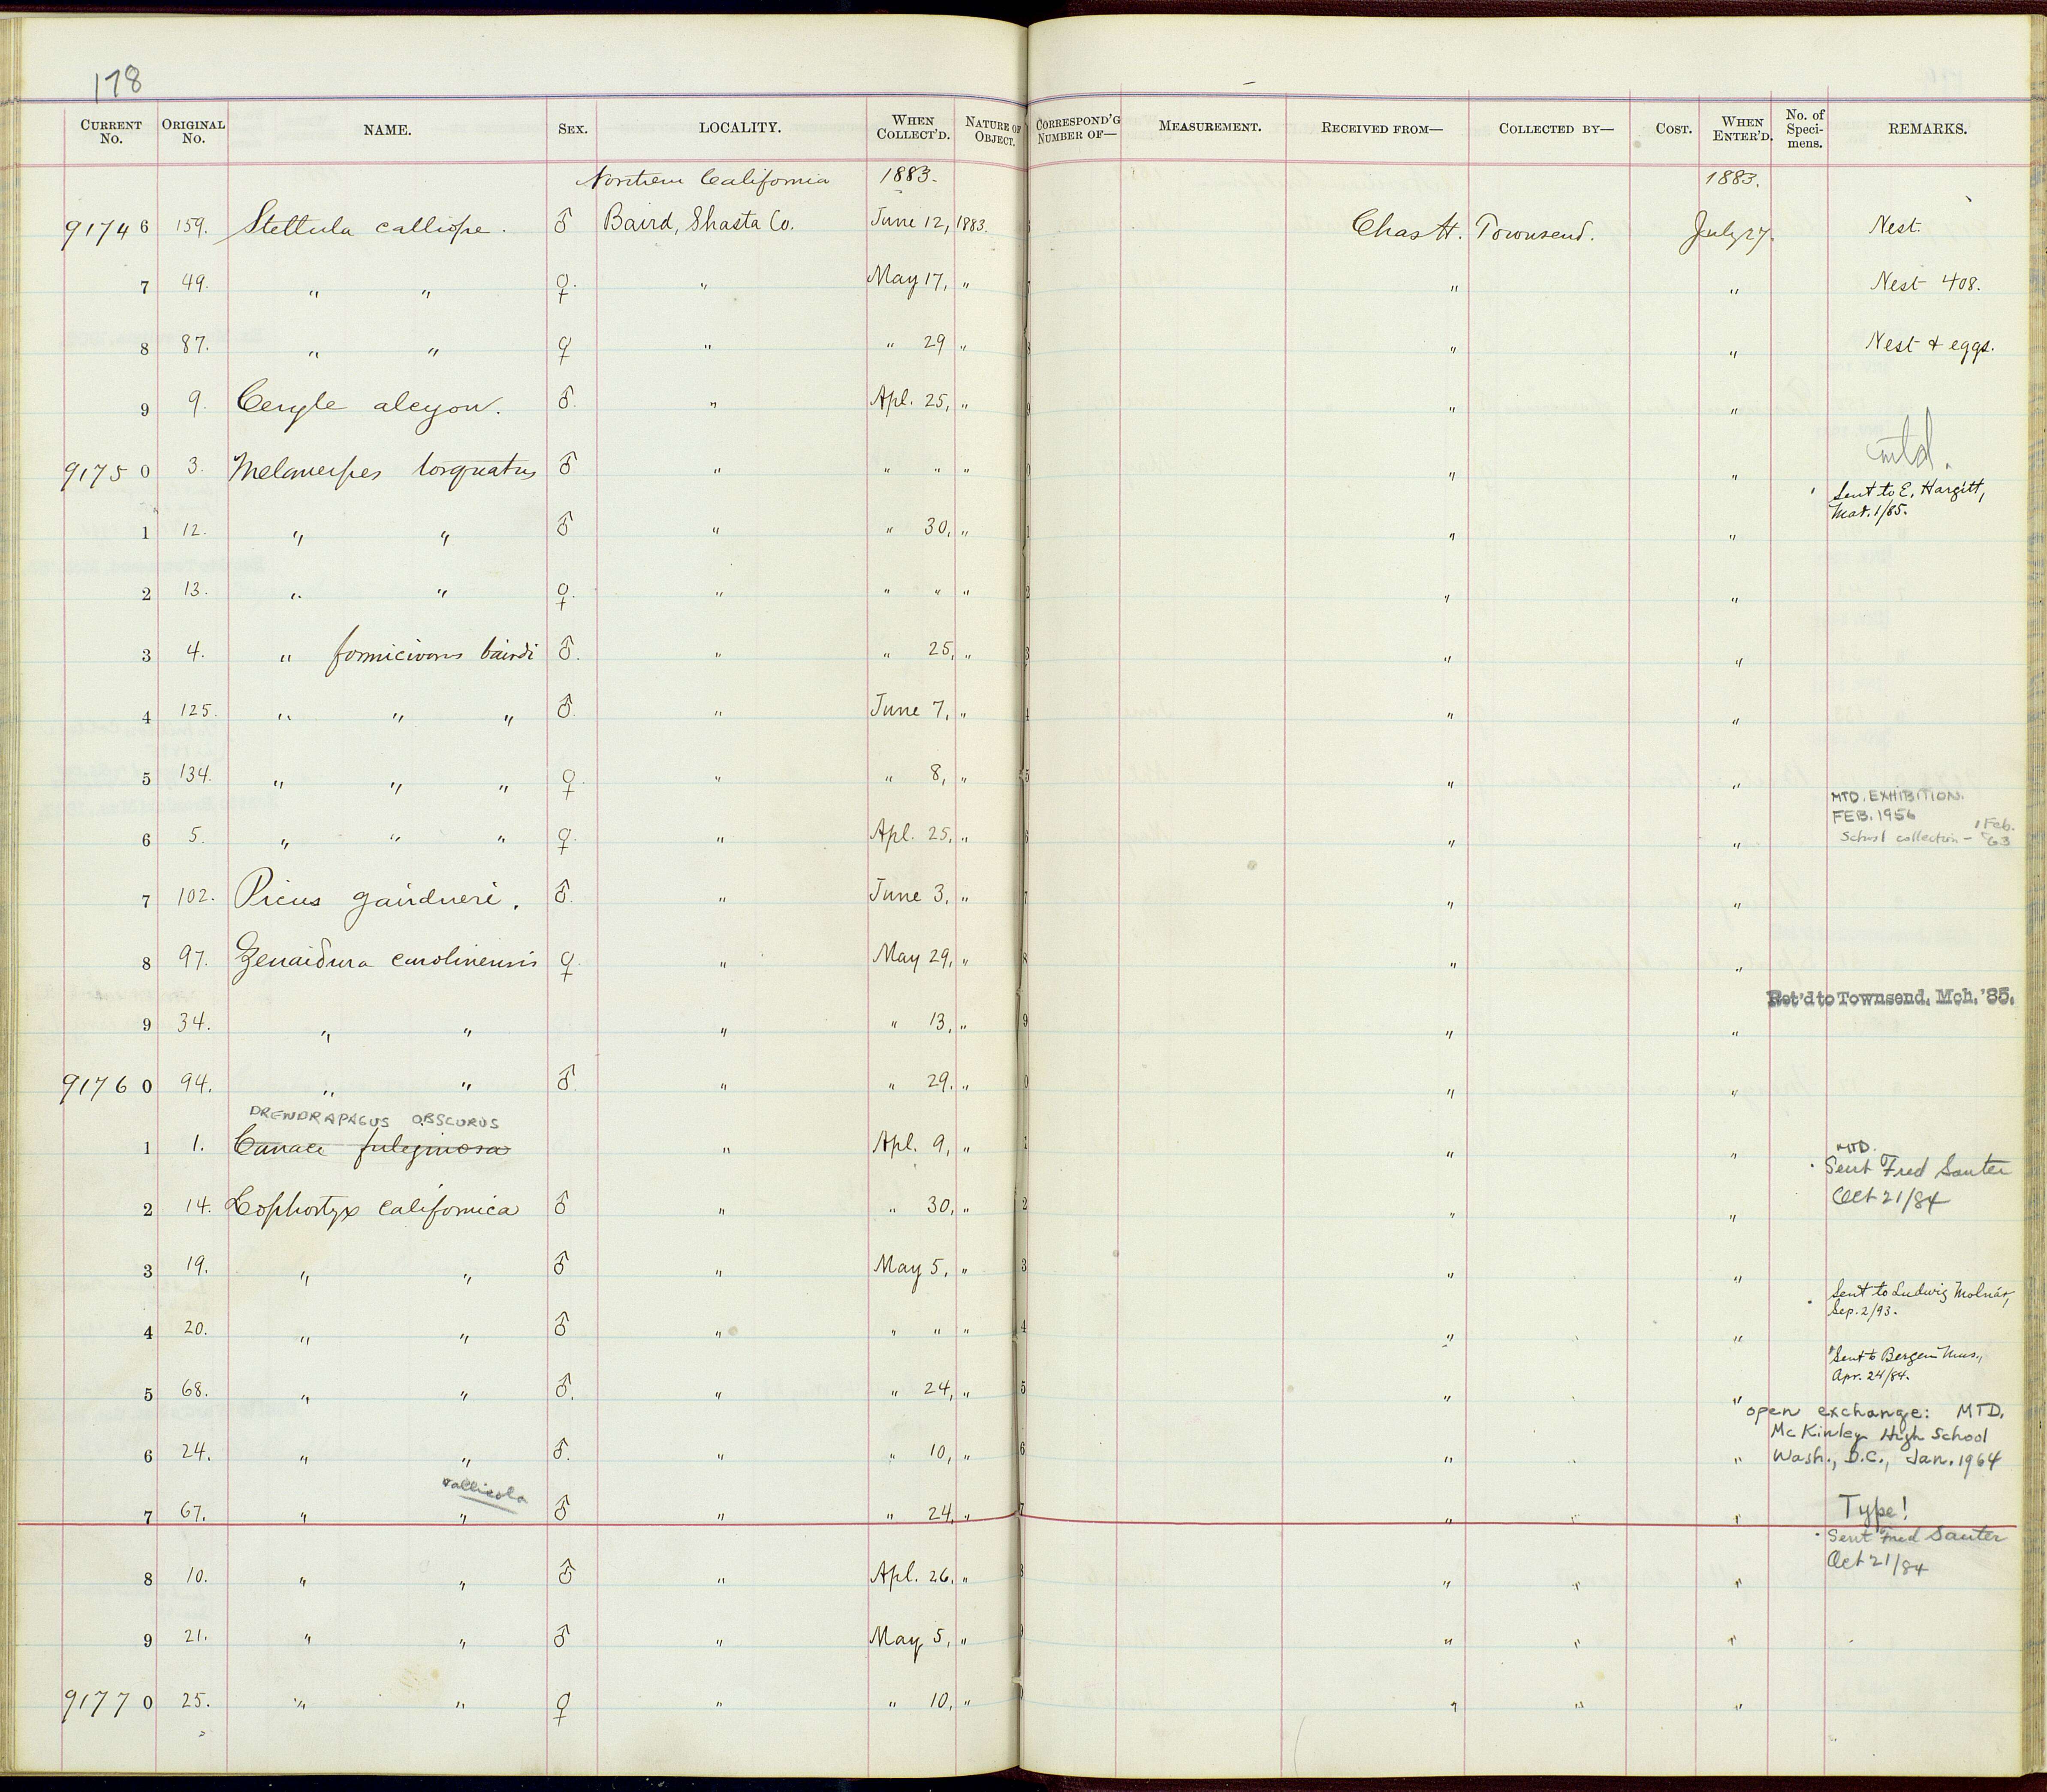 178
CURRENT No. ORIGINAL No. NAME. SEX. LOCALITY. WHEN COLLECT'D. NATURE OF OBJECT. CORRESPOND'G NUMBER OF— MEASUREMENT. RECEIVED FROM— COLLECTED BY— COST. WHEN ENTER'D. No. of Specimens. REMARKS.
Northern California 1883. 1883.
91746 159. Stellula calliope. ♂ Baird, Shasta Co. June 12, 1883. Chas H. Townsend. July 27. Nest.
7 49. " " ♀. " May 17, " " " Nest 408.
8 87. " " ♀ " " 29 " " " Nest & eggs.
9 9. Ceryle alcyon. ♂. " Apl. 25, " " "
mtd.
91750 3. Melanerpes torquatus ♂ " " " " " "
Sent to E. Hargitt,
Mar. 1/85.
1 12. " " ♂ " " 30, " " "
2 13. " " ♀. " " " " " "
3 4. " formicivorus bairdi ♂. " " 25, " " "
4 125. " " " ♂. " June 7, " " "
5 134. " " " ♀. " " 8, " " "
MTD. EXHIBITION.
FEB. 1956
School collection – 1 Feb. '63
6 5. " " " ♀. " Apl. 25, " " "
7 102. Picus gairdneri. ♂. " June 3, " " "
8 97. Zenaidura carolinensis ♀. " May 29, " " "
Ret'd to Townsend, Mch. '85.
9 34. " " " " 13, " " "
91760 94. " " ♂. " " 29, " " "
DRENDRAPAGUS OBSCURUS
1 1. Canace fuleginosa " Apl. 9, " " "
MTD.
Sent Fred Sauter
Oct 21/84
2 14. Lophortyx californica ♂ " " 30, " " "
3 19. " " ♂ " May 5, " " "
Sent to Ludwig Molnár,
Sep. 2/93.
4 20. " " ♂ " " " " " "
Sent to Bergen Mus.,
Apr. 24/84.
5 68. " " ♂. " " 24, " " "
open exchange: MTD.
McKinley High School
Wash., D.C., Jan. 1964
6 24. " " ♂. " " 10, " " " "
vallicola
7 67. " " ♂ " " 24, " " " " Type!
Sent Fred Sauter
Oct 21/84
8 10. " " ♂ " Apl. 26, " " " "
9 21. " " ♂ " May 5, " " " "
91770 25. " " ♀ " " 10, " " " "